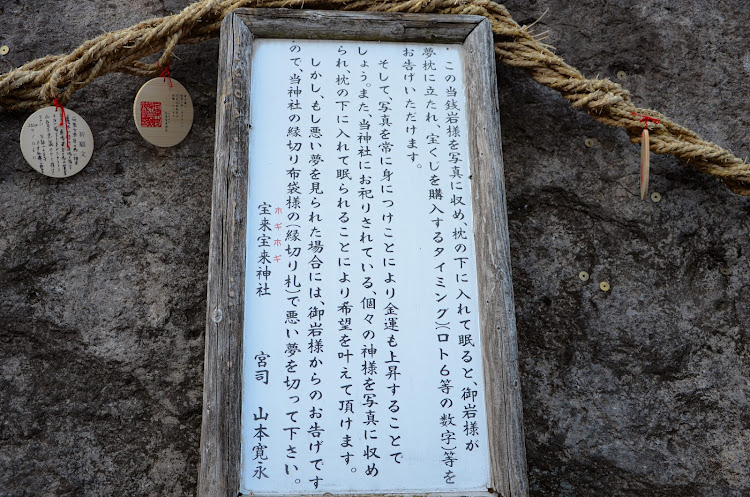 ・この当銭岩様を写真に収め、枕の下に入れて眠ると、御岩様が
夢枕に立たれ、宝くじを購入するタイミング)(ロト6等の数字)等を
お告げいただけます。
そして、写真を常に身につけことにより金運も上昇することで
しょう。また、当神社にお祀りされている、個々の神様を写真に収め
られ枕の下に入れて眠られることにより希望を叶えて頂けます。
しかし、もし悪い夢を見られた場合には、御岩様からのお告げです
ので、当神社の縁切り布袋様の(縁切り札)で悪い夢を切って下さい。
ホギホギ
宝来宝来神社 宮司 山本寛永
祈願